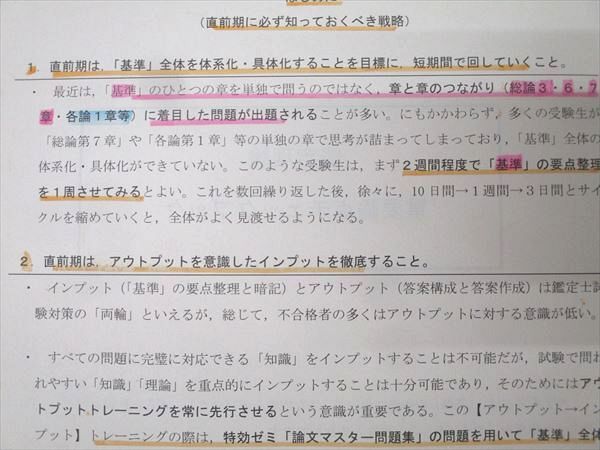 はじめに
(直前期に必ず知っておくべき戦略)
1. 直前期は、「基準」全体を体系化・具体化することを目標に，短期間で回していくこと。
・ 最近は，「基準」のひとつの章を単独で問うのではなく，章と章のつながり（総論３・６・７
章・各論１章等）に着目した問題が出題されることが多い。にもかかわらず，多くの受験生が
「総論第７章」や「各論第１章」等の単独の章で思考が詰まってしまっており，「基準」全体の
体系化・具体化ができていない。このような受験生は，まず２週間程度で「基準」の要点整理
を１周させてみるとよい。これを数回繰り返した後，徐々に，10 日間→１週間→３日間とサイ
クルを縮めていくと，全体がよく見渡せるようになる。
2. 直前期は，アウトプットを意識したインプットを徹底すること。
・ インプット（「基準」の要点整理と暗記）とアウトプット（答案構成と答案作成）は鑑定士試
験対策の「両輪」といえるが，総じて，不合格者の多くはアウトプットに対する意識が低い。
・ すべての問題に完璧に対応できる「知識」をインプットすることは不可能だが，試験で問わ
れやすい「知識」「理論」を重点的にインプットすることは十分可能であり，そのためにはアウ
トプットトレーニングを常に先行させるという意識が重要である。この【アウトプット→イン
プット】トレーニングの際は，特効ゼミ「論文マスター問題集」の問題を用いて「基準」全体